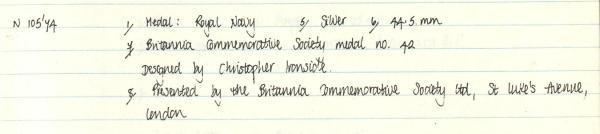 N 105'74 1, Medal: Royal Navy 5, Silver 6, 44.5.mm
7, Britannia Commemorative Society medal no. 42
Designed by Christopher Ironside.
8, Presented by the Britannia Commemorative Society Ltd, St Luke's Avenue,
London